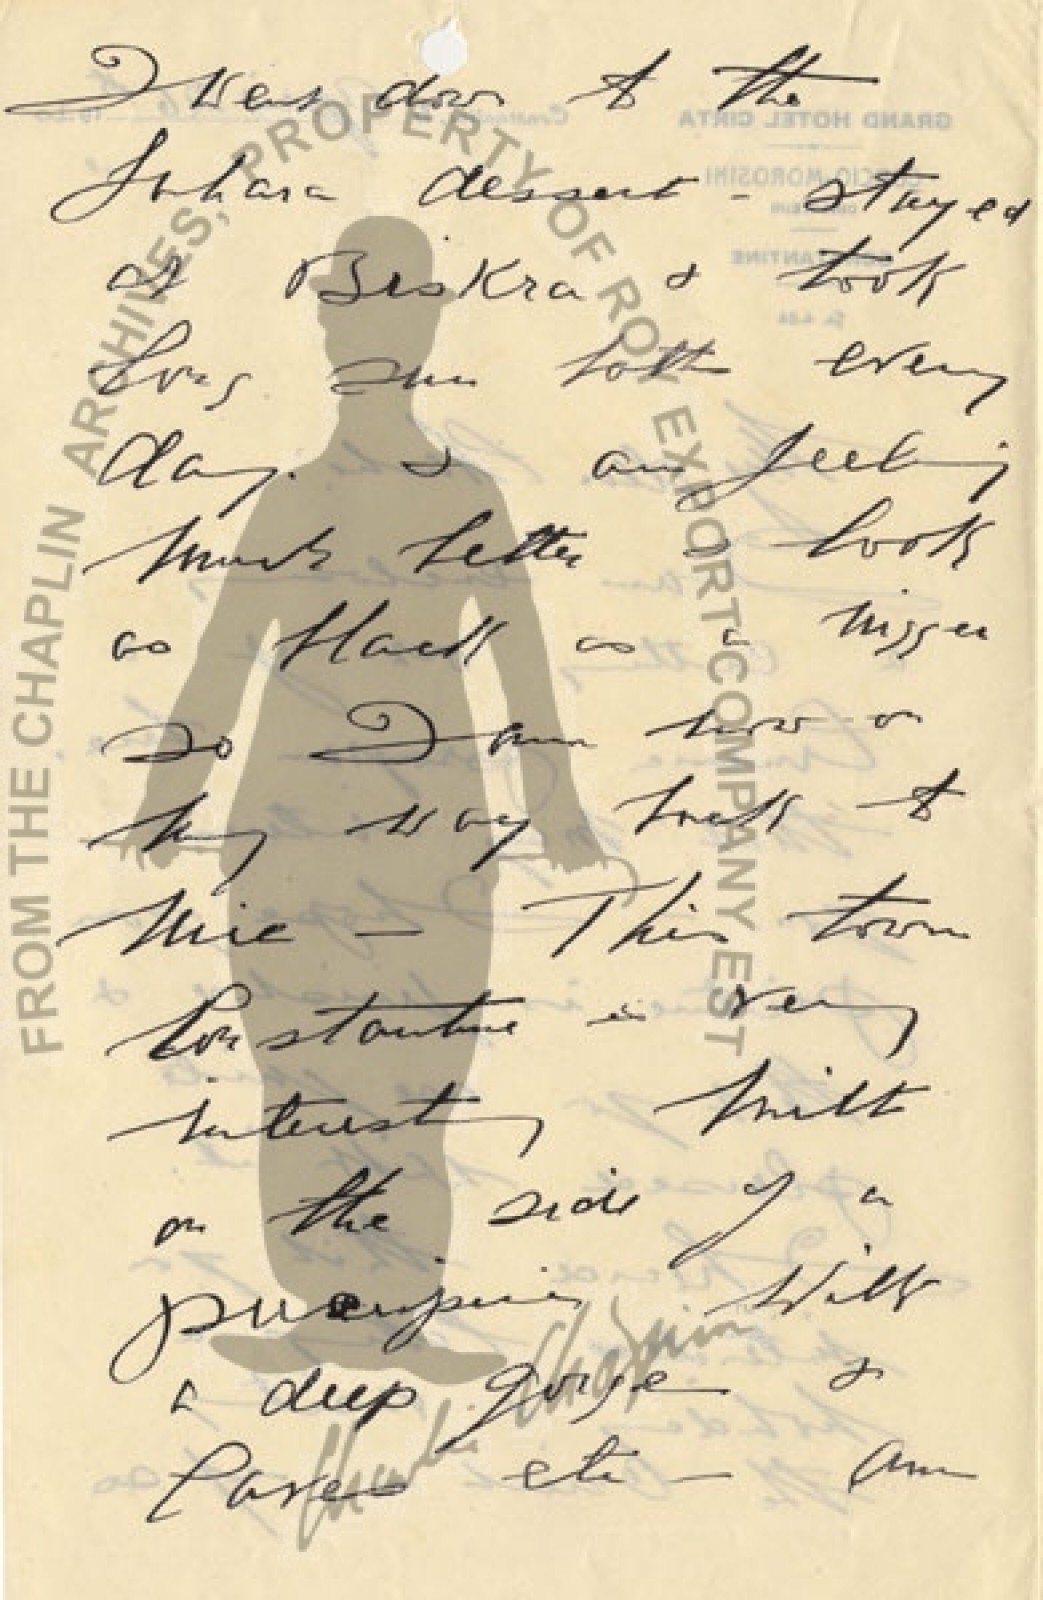 I went down to the
Sahara dessert - stayed
at Biskra & took
long sun bath every
day. & am feeling
much better look
as black as a nigger
so I am now on
my way back to
Nice - This town
Constantine is very
interesting built
on the side of a
With
a deep gorge &
Caves etc - am
FROM THE CHAPLIN ARCHIVES, PROPERTY OF ROY EXPORT COMPANY EST
Charlie Chaplin
GRAND HOTEL CIRTA
MOROSINI
CONSTANTINE